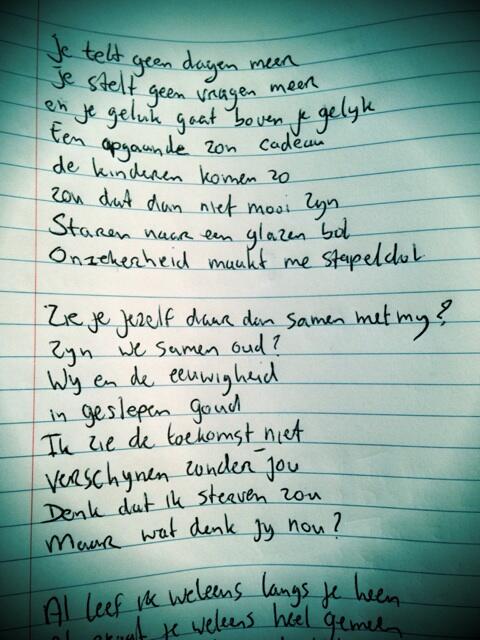 Je telt geen dagen meer
Je stelt geen vragen meer
en je geluk gaat boven je gelyk
Een opgaande zon cadeau
de kinderen komen zo
zou dat dan niet mooi zyn
Staren naar een glazen bol
Onzekerheid maakt me stapeldol
Zie je jezelf daar dan samen met my?
Zyn we samen oud?
Wy en de eeuwigheid
in geslepen goud
Ik zie de toekomst niet
verschynen zonder jou
Denk dat ik sterven zou
Maar wat denk jy nou?
Al leef ik weleens langs je heen
je weleens heel gemeen